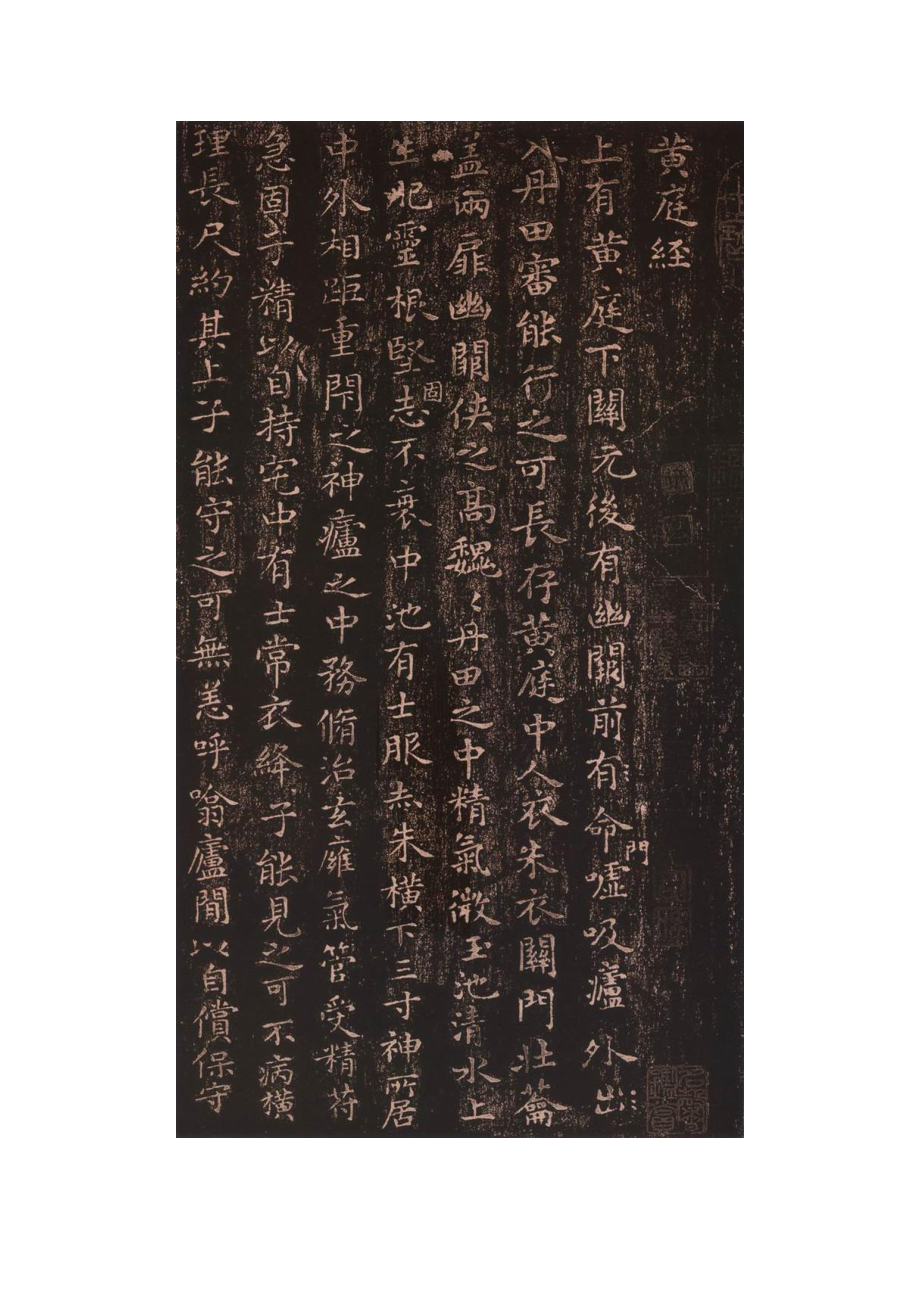 黄庭經
上有黄庭下關元後有幽闕前有命門嘘吸廬外出
入丹田審能行之可長存黄庭中人衣朱衣關門壯籥
盖兩扉幽闕侠之髙魏〻丹田之中精氣微玉池清水上
生肥靈根堅固志不衰中池有士服赤朱横下三寸神所居
中外相距重閇之神廬之中務脩治玄廱氣管受精符
急固子精以自持宅中有士常衣絳子能見之可不病横
理長尺約其上子能守之可無恙呼噏廬間以自償保守